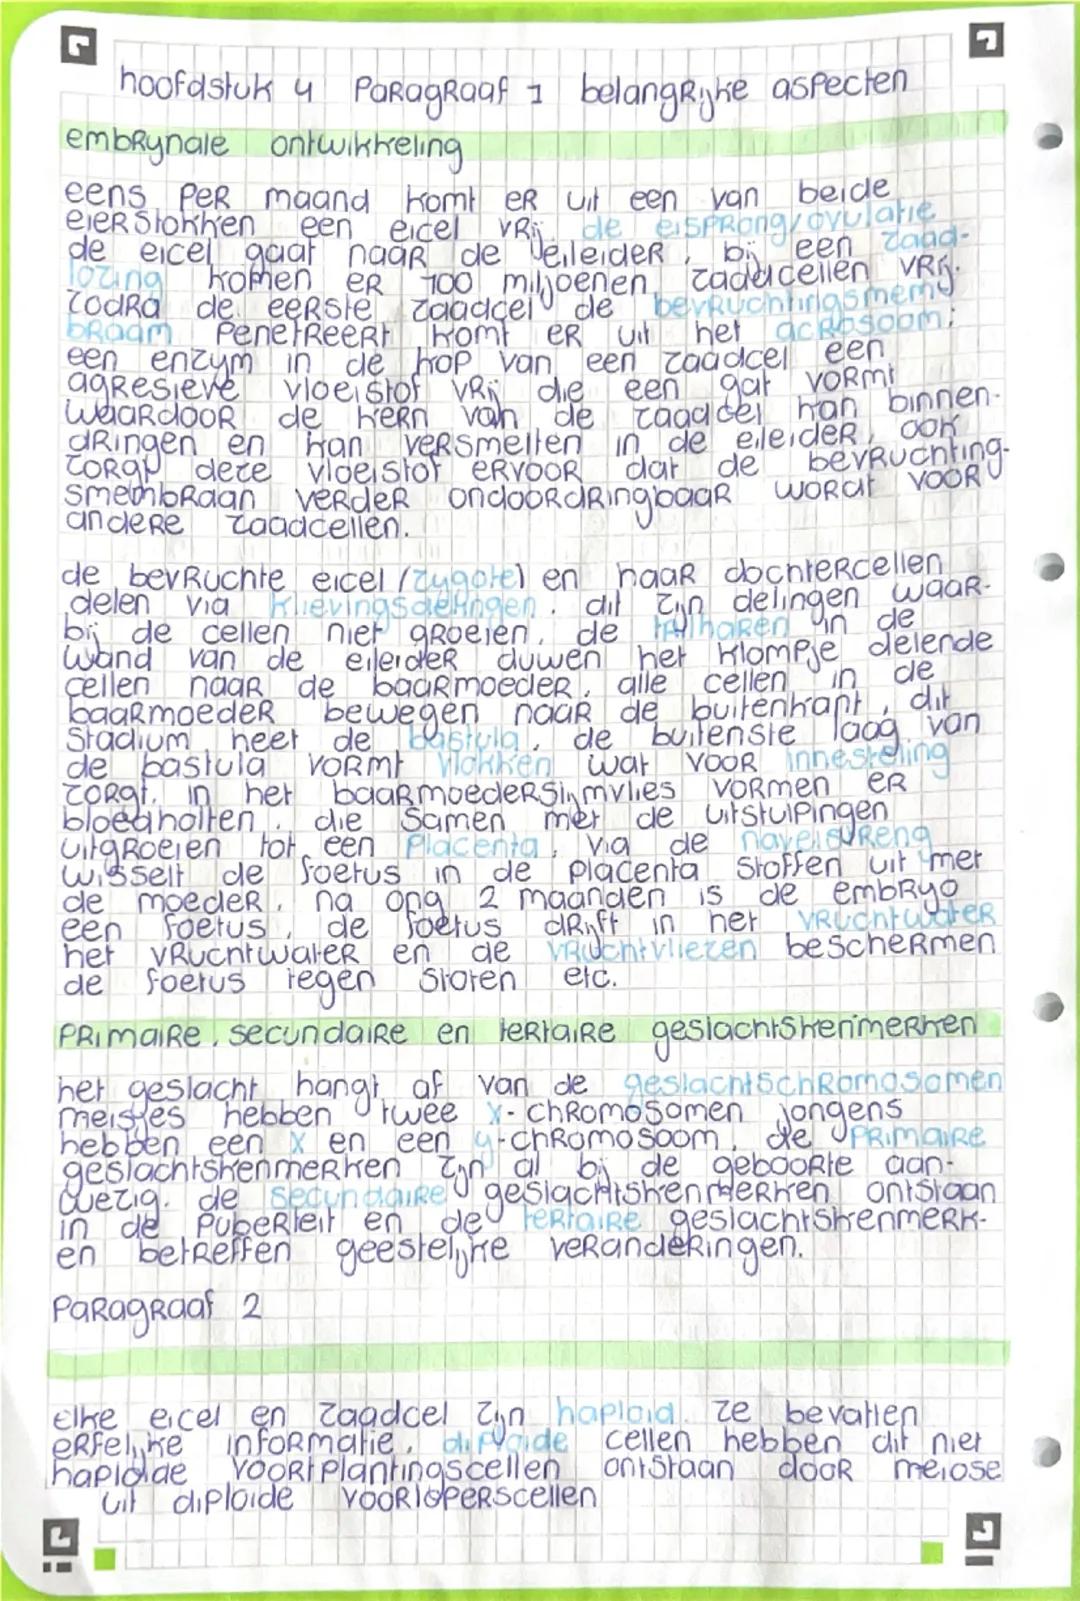 hoofdstuk 4 Paragraaf 1 belangrijke aspecten
embrynale ontwikkeling
eens per maand komt er uit een van beide
eierstokken een eicel vrij de eisprong/ovulatie
de eicel gaat naar de eileider, bij een zaad-
lozing komen er 100 miljoenen zaadcellen vrij.
zodra de eerste zaadcel de bevruchtingsmem
braam penetreert komt er uit het acrosoom;
een enzym in de kop van een zaadcel een
agresieve vloeistof vrij die een gat vormt
waardoor de kern van de zaadcel kan binnen-
dringen en kan versmelten in de eileider, ook
zorgt deze vloeistof ervoor dat de bevruchting-
smembraan verder ondoordringbaar wordt voor
andere zaadcellen.
de bevruchte eicel (zygote) en haar dochtercellen
delen via klievingsdelingen. dit zijn delingen waar-
bij de cellen niet groeien. de trilharen in de
wand van de eileider duwen het klompje delende
cellen naar de baarmoeder. alle cellen in de
baarmoeder bewegen naar de buitenkant, dit
stadium heet de bastula, de buitenste laag van
de bastula vormt vlokken wat voor innesteling
zorgt. in het baarmoederslijmvlies vormen er
bloedholten. die samen met de uitstulpingen
uitgroeien tot een placenta, via de navelstreng
wisselt de foetus in de placenta stoffen uit met
de moeder. na ong 2 maanden is de embryo
een foetus, de foetus drijft in het vruchtwater
het vruchtwater en de vruchtvliezen beschermen
de foetus tegen stoten etc.
primaire, secundaire en tertaire geslachtskenmerken
het geslacht hangt af van de geslachtschromosomen
meisjes hebben twee x-chromosomen jongens
hebben een x en een y-chromosoom. de primaire
geslachtskenmerken zijn al bij de geboorte aan-
wezig. de secundaire geslachtskenmerken ontstaan
in de puberteit en de tertaire geslachtskenmerk-
en betreffen geestelijke veranderingen.
Paragraaf 2
Elke eicel en zaadcel zijn haploid. ze bevatten
erfelijke informatie, diploide cellen hebben dit niet
haploide voortplantingscellen ontstaan door meiose
uit diploide voorloperscellen